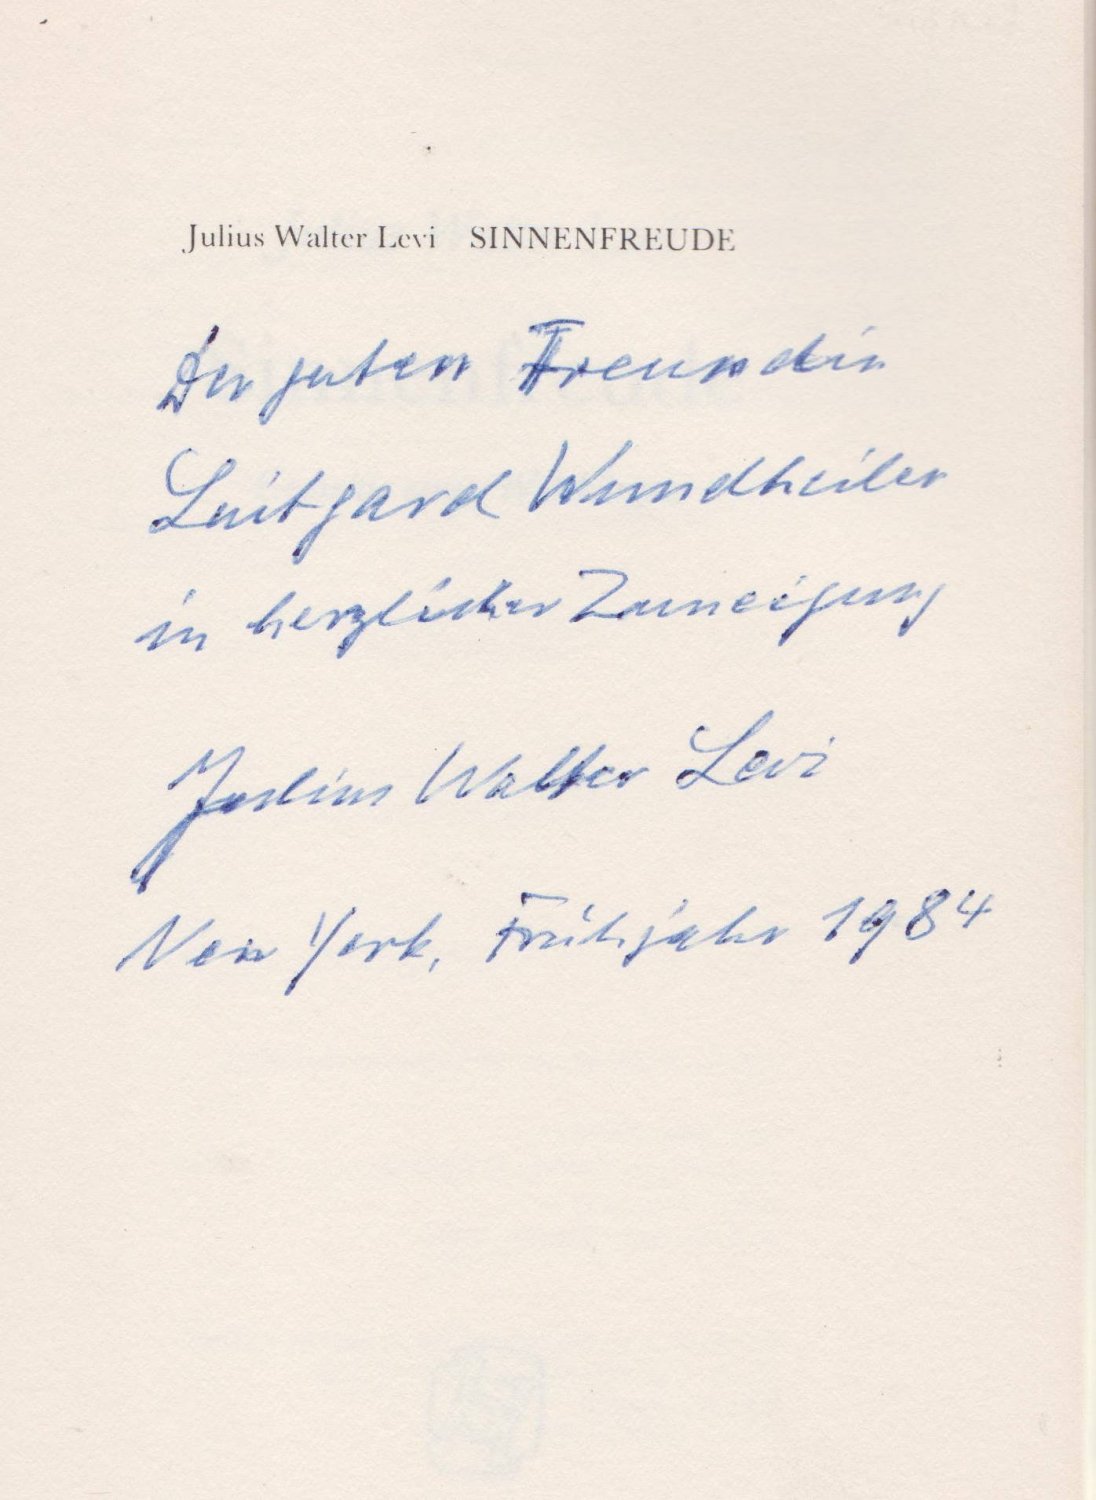 Julius Walter Levi SINNENFREUDE
Der guten Freundin
Luitgard Wundheiler
in herzlicher Zuneigung
Julius Walter Levi
New York, Frühjahr 1984